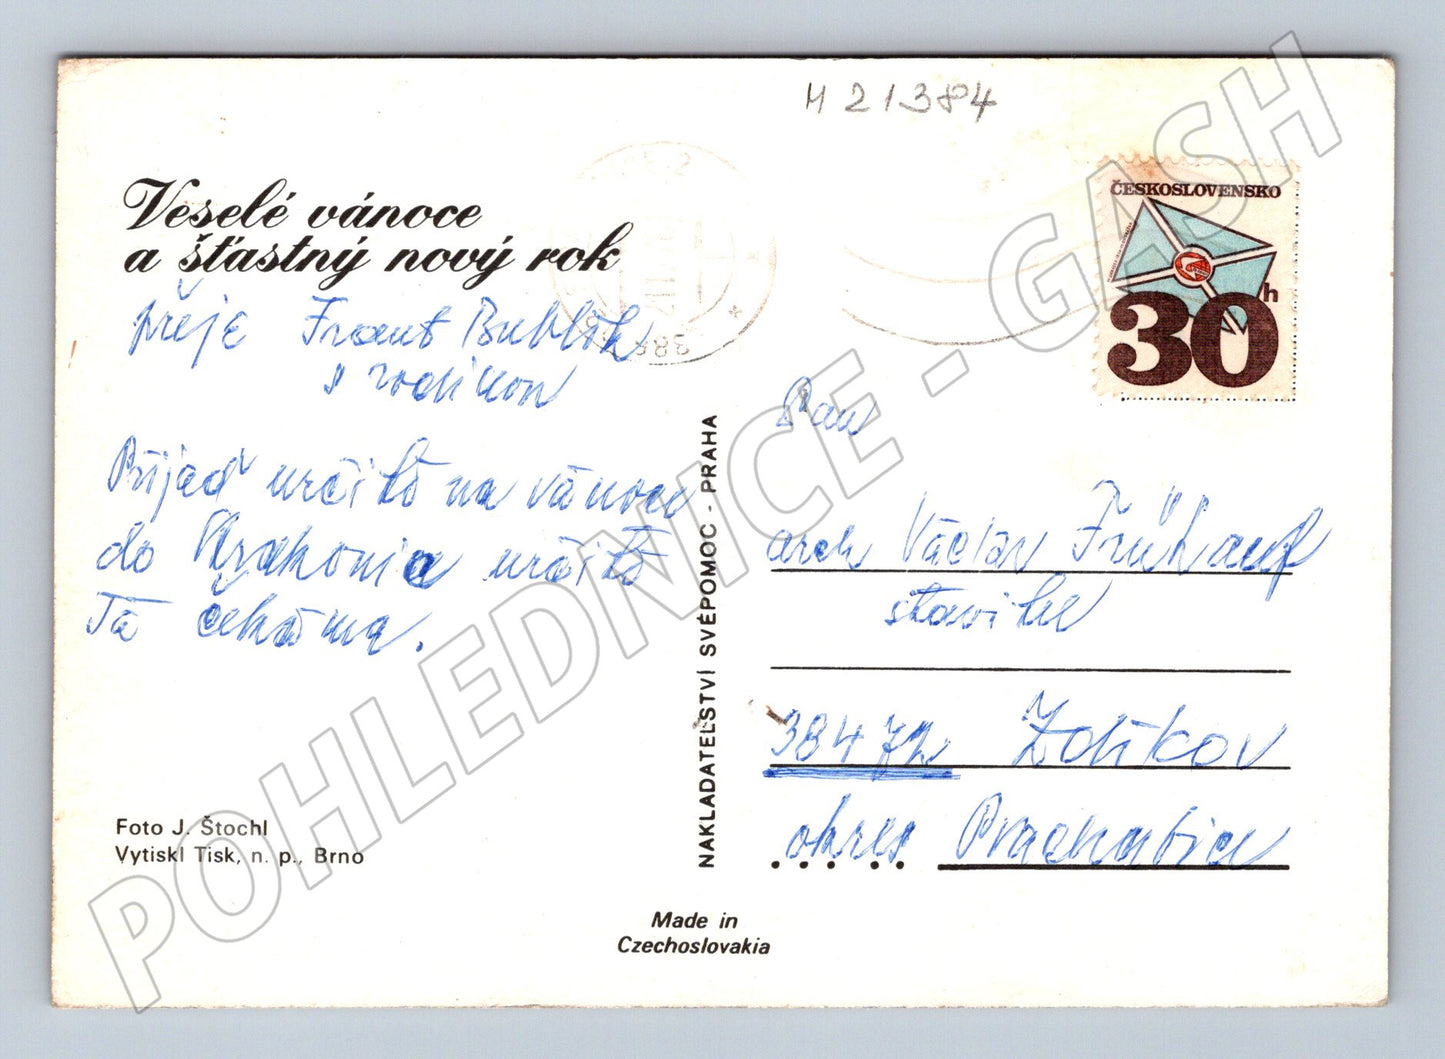 H 21384
Veselé vánoce
a šťastný nový rok
přeje Frant Bublík
s rodinou
Přijeď určitě na vánoce
do určitě
Tě čekáme.
ČESKOSLOVENSKO
30h
Pan
arch Václav Frühauf
stavitel
384 72 Zdíkov
okres Prachatice
NAKLADATELSTVÍ SVÉPOMOC - PRAHA
Foto J. Štochl
Vytiskl Tisk, n. p., Brno
Made in
Czechoslovakia
POHLEDNICE - GASH